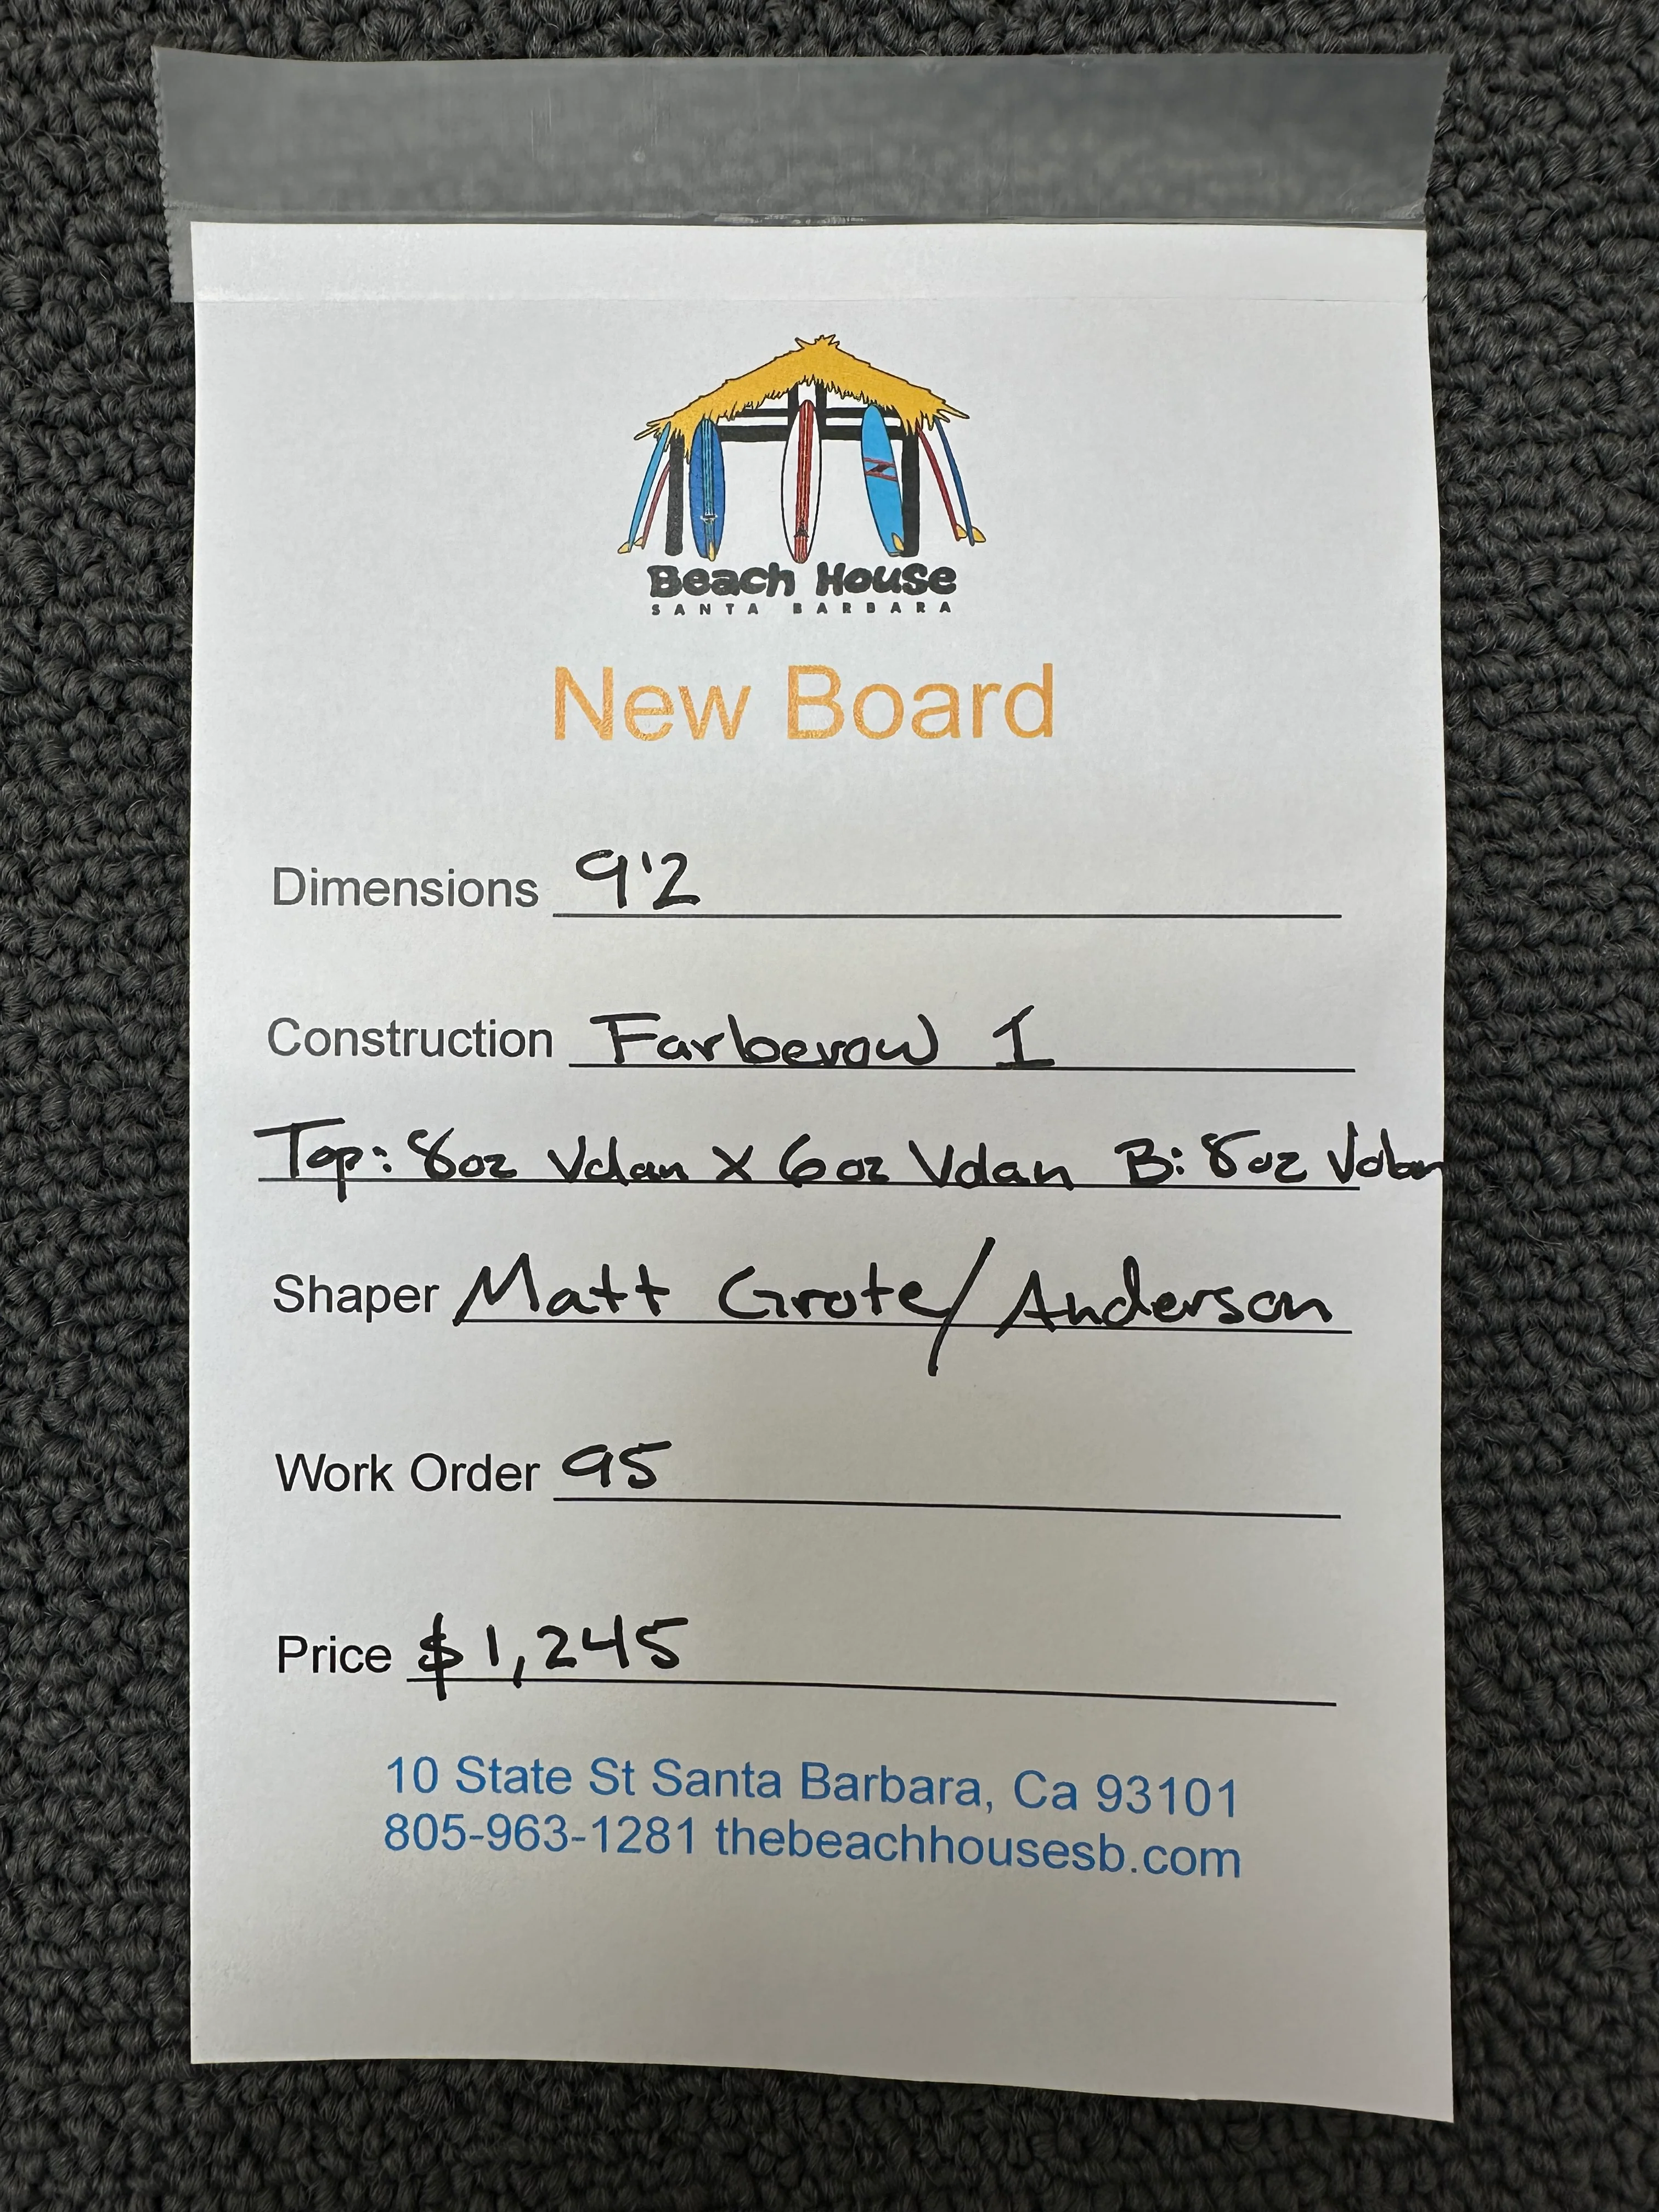 Beach House
SANTA BARBARA
New Board
Dimensions 9'2
Construction Farberow I
Top: 8oz Volan X 6oz Volan B: 8oz Volan
Shaper Matt Grote/Anderson
Work Order 95
Price $1,245
10 State St Santa Barbara, Ca 93101
805-963-1281 thebeachhousesb.com